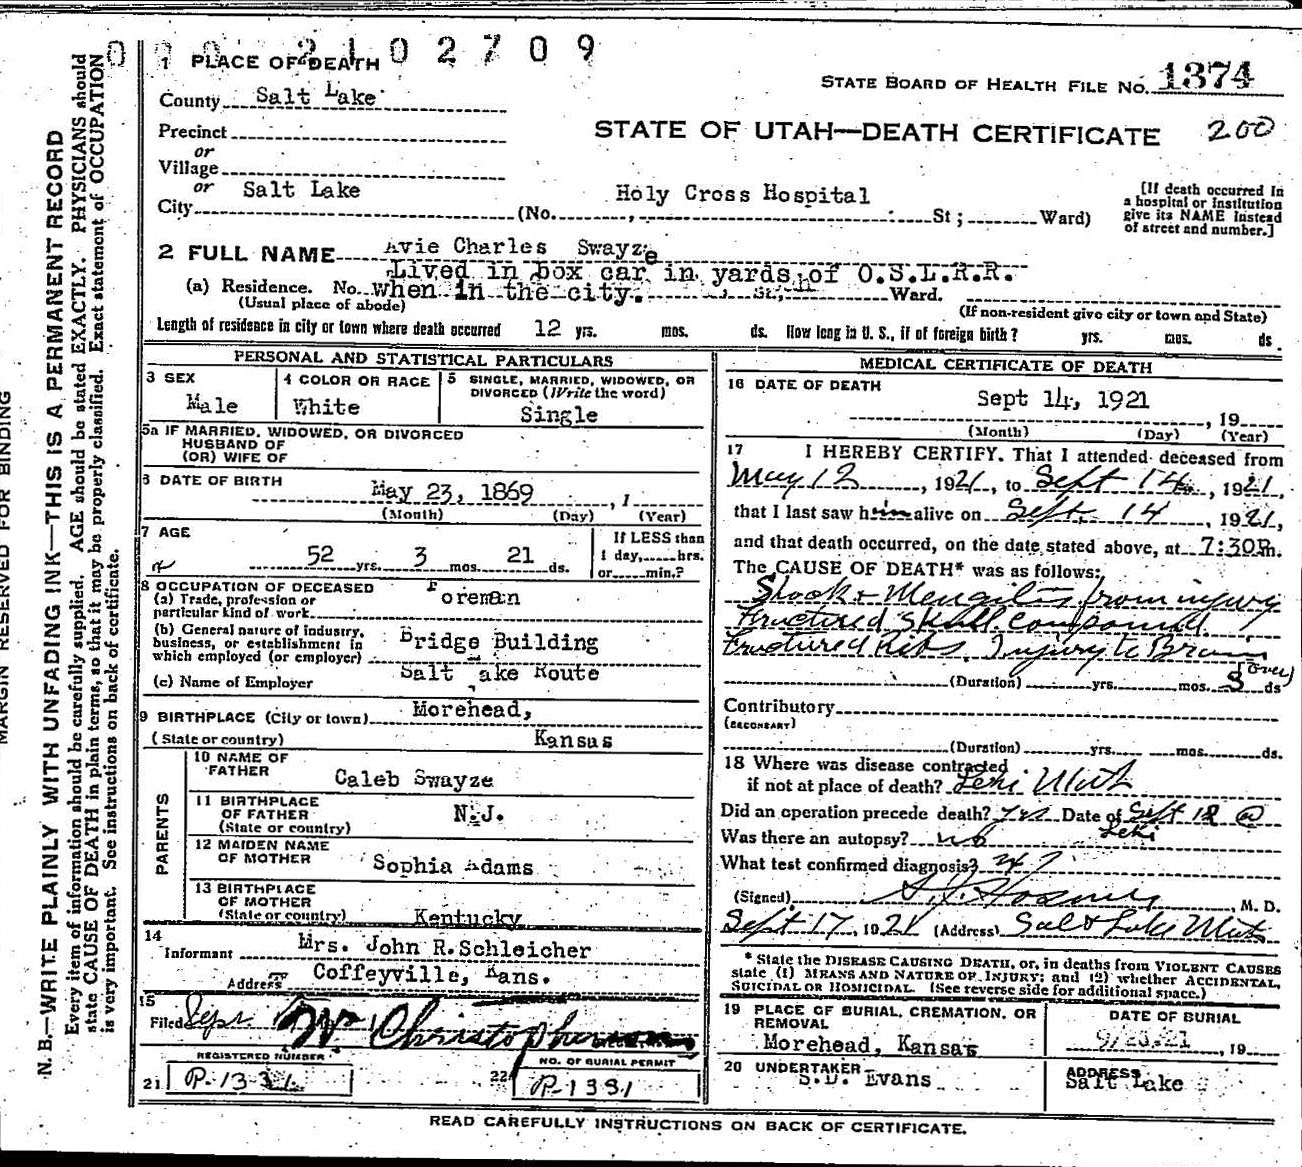 0 0 0 2 1 0 2 7 0 9
1 PLACE OF DEATH
STATE BOARD OF HEALTH FILE NO. 1374
County Salt Lake
Precinct
STATE OF UTAH—DEATH CERTIFICATE 200
or
Village
or
City Salt Lake (No. Holy Cross Hospital St; Ward)
[If death occurred in
a hospital or institution
give its NAME instead
of street and number.]
2 FULL NAME Avie Charles Swayze
Lived in box car in yards of O.S.L.R.R.
(a) Residence. No. when in the city. St., Ward.
(Usual place of abode) (If non-resident give city or town and State)
Length of residence in city or town where death occurred 12 yrs. mos. ds. How long in U. S., if of foreign birth? yrs. mos. ds.
PERSONAL AND STATISTICAL PARTICULARS
3 SEX Male
4 COLOR OR RACE White
5 SINGLE, MARRIED, WIDOWED, OR
DIVORCED (Write the word)
Single
5a IF MARRIED, WIDOWED, OR DIVORCED
HUSBAND OF
(OR) WIFE OF
6 DATE OF BIRTH May 23, 1869 , 1
(Month) (Day) (Year)
7 AGE
52 yrs. 3 mos. 21 ds.
If LESS than
1 day, hrs.
or min.?
8 OCCUPATION OF DECEASED
(a) Trade, profession or
particular kind of work Foreman
(b) General nature of industry,
business, or establishment in
which employed (or employer) Bridge Building
(c) Name of Employer Salt Lake Route
9 BIRTHPLACE (City or town) Morehead,
(State or country) Kansas
PARENTS
10 NAME OF
FATHER Caleb Swayze
11 BIRTHPLACE
OF FATHER
(State or country) N.J.
12 MAIDEN NAME
OF MOTHER Sophia Adams
13 BIRTHPLACE
OF MOTHER
(State or country) Kentucky
14
Informant Mrs. John R.Schleicher
Address Coffeyville, Kans.
15
Filed Sept.
REGISTERED NUMBER
21 P-1331
NO. OF BURIAL PERMIT
22 P-1331
MEDICAL CERTIFICATE OF DEATH
16 DATE OF DEATH
Sept 14, 1921 , 19
(Month) (Day) (Year)
17 I HEREBY CERTIFY. That I attended deceased from
May 12 , 1921, to Sept 14 , 1921,
that I last saw him alive on Sept. 14 , 1921,
and that death occurred, on the date stated above, at 7:30P.m.
The CAUSE OF DEATH* was as follows:
Shock & from injury
Fractured Skull compound
Fractured Ribs. Injury to Brain
(over)
(Duration) yrs. mos. 3 ds
Contributory
(SECONDARY)
(Duration) yrs. mos. ds.
18 Where was disease contracted
if not at place of death? Lehi Utah
Did an operation precede death? yes Date of Sept 12 @
Lehi
Was there an autopsy? no
What test confirmed diagnosis?
(Signed) , M. D.
Sept 17, 1921 (Address) Salt Lake Utah
* State the DISEASE CAUSING DEATH, or, in deaths from VIOLENT CAUSES
state (1) MEANS AND NATURE OF INJURY; and (2) whether ACCIDENTAL,
SUICIDAL OR HOMICIDAL. (See reverse side for additional space.)
19 PLACE OF BURIAL, CREMATION, OR
REMOVAL
Morehead, Kansas
DATE OF BURIAL
9/20.21 , 19
20 UNDERTAKER
S.D. Evans
ADDRESS
Salt Lake
READ CAREFULLY INSTRUCTIONS ON BACK OF CERTIFICATE.
MARGIN RESERVED FOR BINDING
N. B.—WRITE PLAINLY WITH UNFADING INK—THIS IS A PERMANENT RECORD
Every item of information should be carefully supplied. AGE should be stated EXACTLY. PHYSICIANS should
state CAUSE OF DEATH in plain terms, so that it may be properly classified. Exact statement of OCCUPATION
is very important. See instructions on back of certificate.